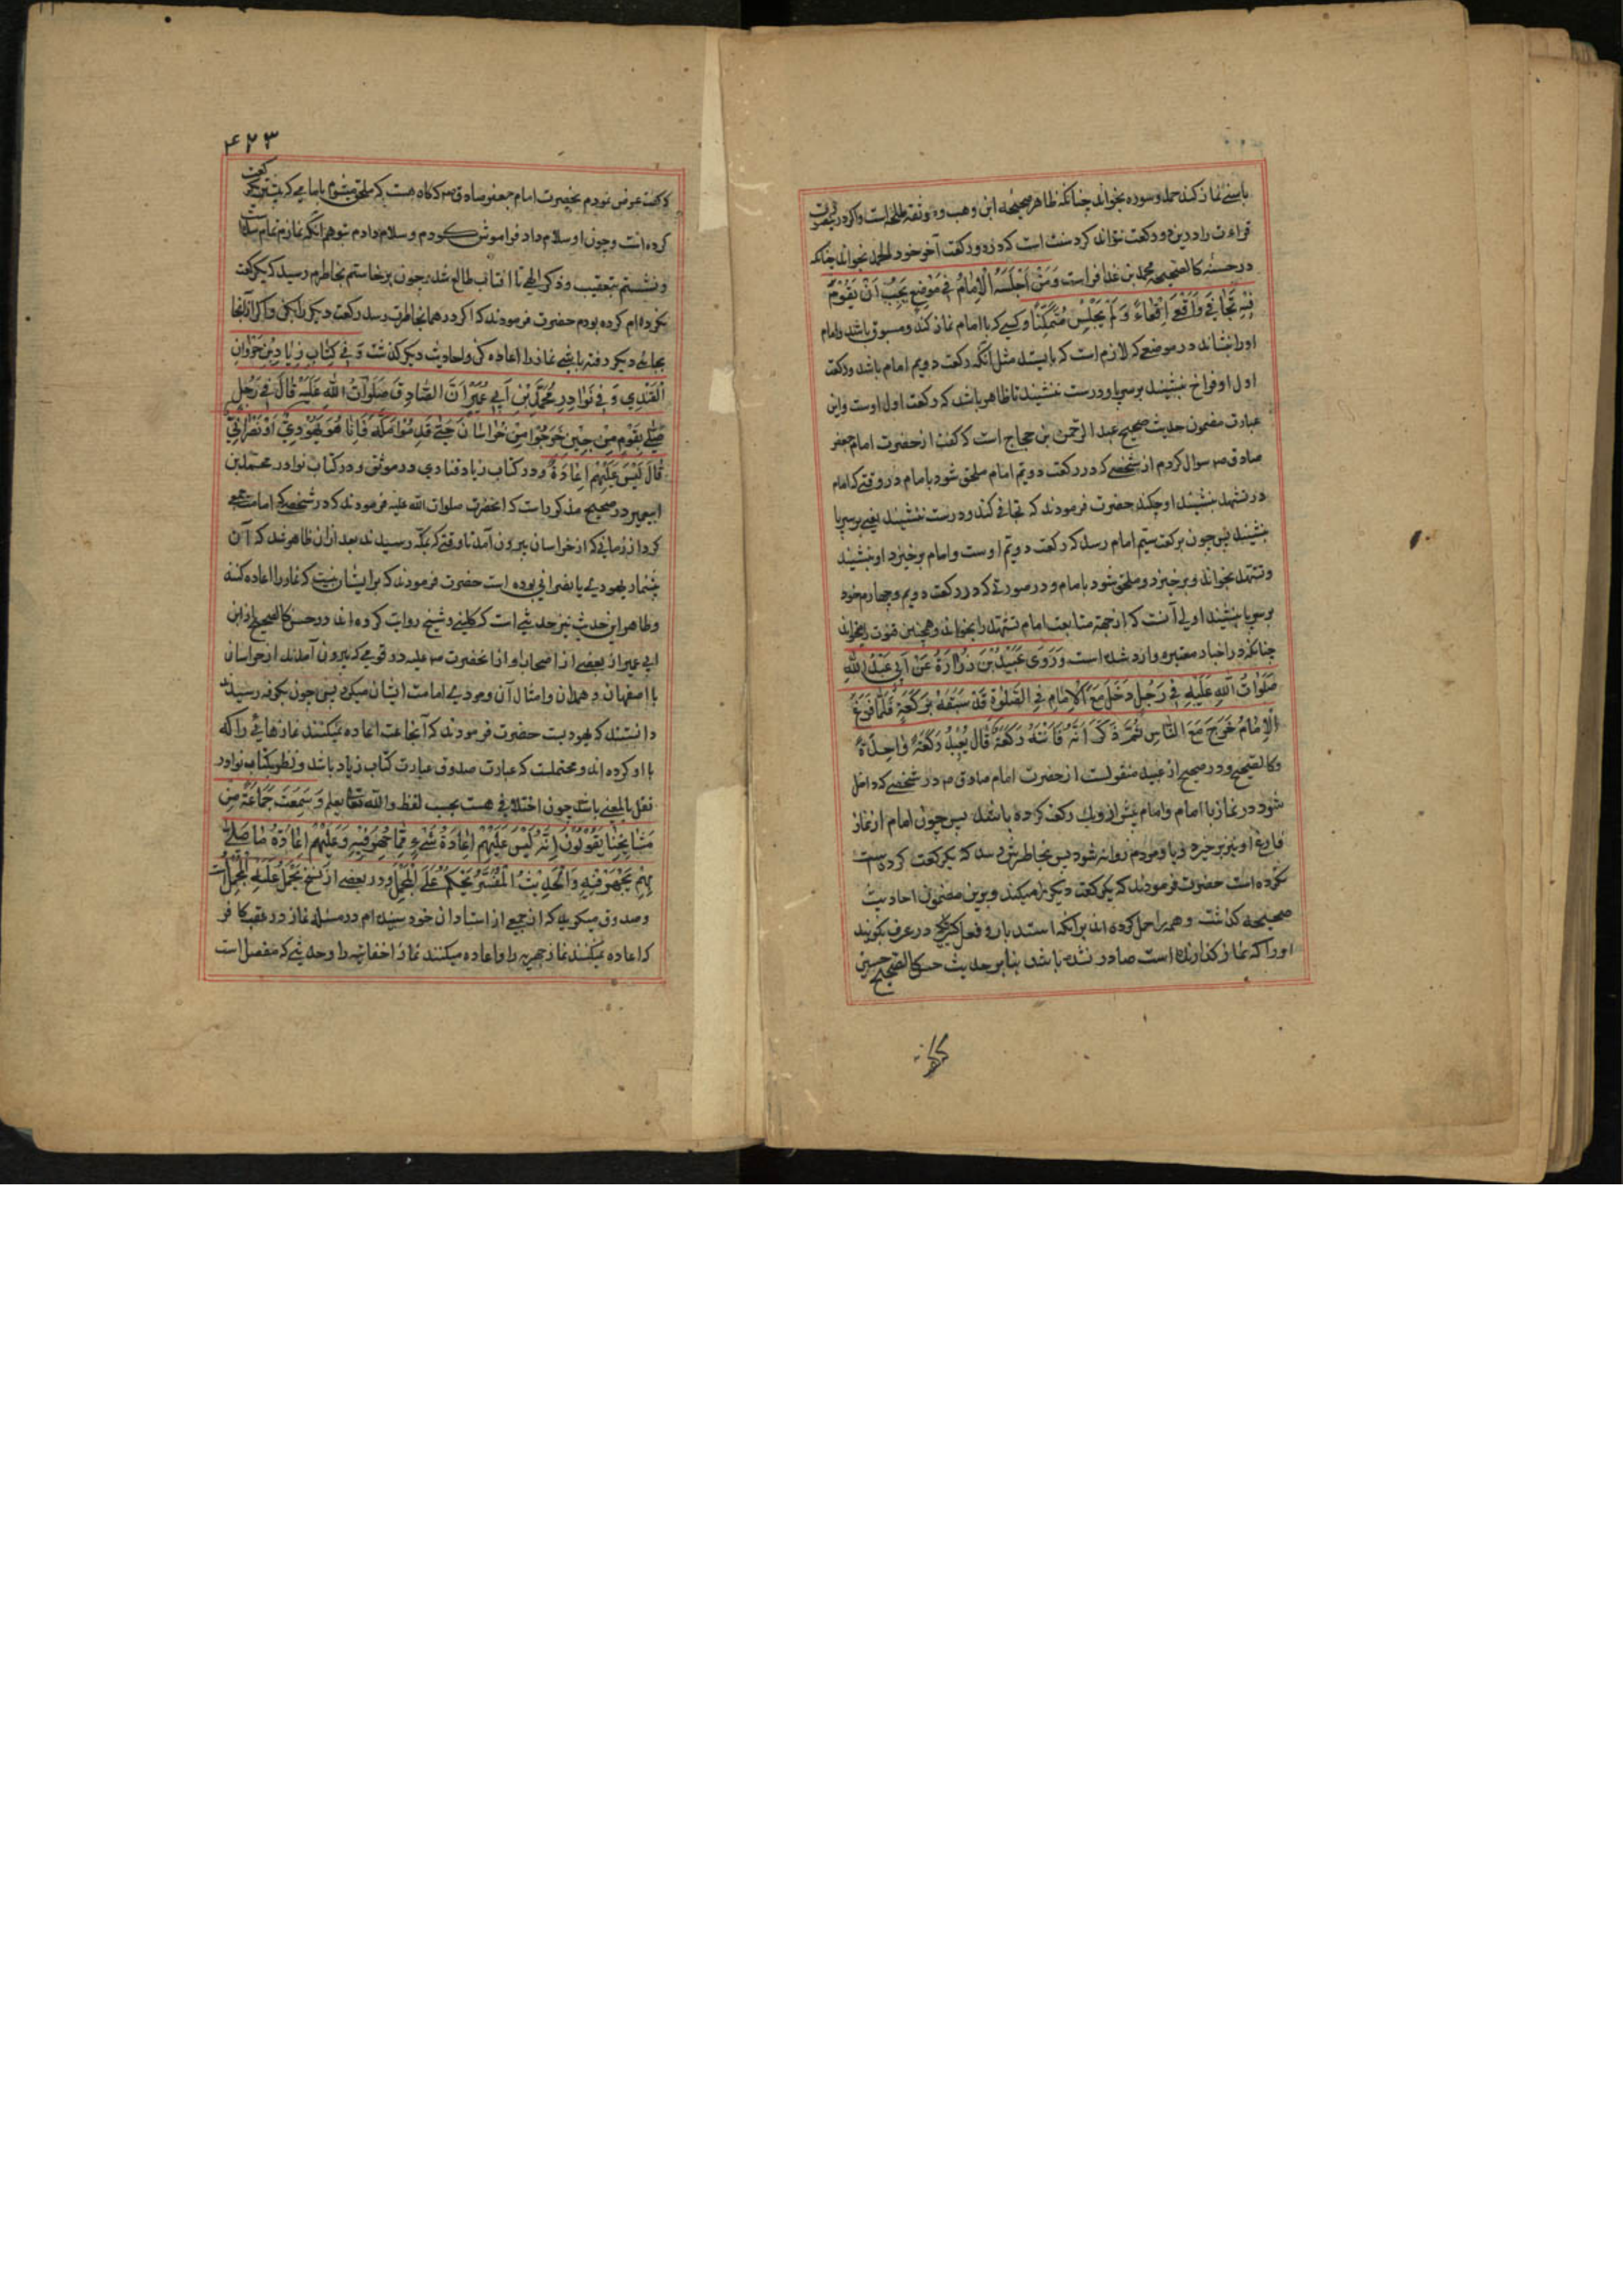 باسنے نماز کند حمد و سوره بخواند چنانکه ظاهر صحیحه ابن وهب و موثقه است واکر در
قراءت را درین دو رکعت نتواند کرد سنت است که در دو رکعت آخر خود الحمد بخواند چنانکه
در حسنه کالصحیحه محمد بن عذافر است وَمَنْ اَجْلَسَهُ الْاِمَامُ فِي مَوْضِعٍ يَجِبُ اَنْ يَقُوْمَ
فِيْهِ تَجَافٰى وَاَقْعٰى اِقْعَاءً وَلَمْ يَجْلِسْ مُتَمَكِّنًا و کسی که با امام نماز کند و مسبوق باشد و امام
اورا بنشاند در موضعی که لازم است که بایستد مثل آنکه رکعت دویم امام باشد و رکعت
اول او فراخ ننشیند بر سرپا و درست ننشیند تا ظاهر باشد که رکعت اول اوست و این
عبارت مضمون حدیث صحیح عبد الرحمن بن حجاج است که گفت از حضرت امام جعفر
صادق ص سوال کردم از شخصی که در رکعت دویم امام ملحق شود با امام در وقتی که امام
در تشهد بنشیند او چکند حضرت فرمودند که تجافی کند و درست ننشیند یعنی بر سرپا
بنشیند پس چون برکعت سیم امام رسد که رکعت دویم اوست و امام برخیزد او بنشیند
و تشهد بخواند و برخیزد و ملحق شود با امام و در صورتی که در رکعت دویم و چهارم خود
بر سرپا بنشیند اولی آنست که از جهة متابعت امام تشهد را بخواند و همچنین قنوت را بخواند
چنانکه در اخبار معتبره وارد شده است وَرَوَى عُبَيْدُ بْنُ زُرَارَةَ عَنْ اَبِي عَبْدِ اللهِ
صَلَوَاتُ اللهِ عَلَيْهِ فِي رَجُلٍ دَخَلَ مَعَ الْاِمَامِ فِي الصَّلٰوةِ قَدْ سَبَقَهُ بِرَكْعَةٍ فَلَمَّا فَرَغَ
الْاِمَامُ خَرَجَ مَعَ النَّاسِ ثُمَّ ذَكَرَ اَنَّهُ فَاتَتْهُ رَكْعَةٌ قَالَ يُعِيْدُ رَكْعَةً وَاحِدَةً
و کالصحیح و در صحیح از عبید منقولست از حضرت امام صادق ص در شخصی که داخل
شود در نماز با امام و امام پیش از و یک رکعت کرده باشد پس چون امام از نماز
فارغ او نیز برخیزد و با مردم روانه شود پس بخاطرش رسد که یکرکعت کرده است
نکرده است حضرت فرمودند که یکرکعت دیکر را میکند و برین مضمون احادیث
صحیحه کذشت و همه را حمل کرده اند بر آنکه استدبار و فعل کثیر که در عرف نکویند
اورا که نماز کذارنده است صادر نشده باشد بنا بر حدیث حسن کالصحیح حسین
۴۲۳
که گفت عرض نمودم بحضرت امام جعفر صادق ص که کاه هست که ملحق میشوم با امامی که پیشتر یک رکعت
کرده است و چون او سلام داد فراموش کردم و سلام دادم بتوهم آنکه نمازم تمام شد
و نشستم بتعقیب و ذکر الهی تا آفتاب طالع شد و چون برخاستم بخاطرم رسید که یکرکعت
نکرده ام کرده بودم حضرت فرمودند که اکر در همانجا بخاطرت رسد رکعت دیکر را بکن و اکر از آنجا
بجای دیکر رفته باشی نماز را اعاده کن و احادیث دیکر کذشت وَفِي كِتَابِ زِيَادِ بْنِ مَرْوَانَ
الْقَنْدِي وَفِي نَوَادِرِ مُحَمَّدِ بْنِ اَبِي عُمَيْرٍ اَنَّ الصَّادِقَ صَلَوَاتُ اللهِ عَلَيْهِ قَالَ فِي رَجُلٍ
صَلّٰى بِقَوْمٍ مِنْ حِيْنِ خَرَجُوْا مِنْ خُرَاسَانَ حَتّٰى قَدِمُوْا مَكَّةَ فَاِذَا هُوَ يَهُوْدِيٌّ اَوْ نَصْرَانِيٌّ
قَالَ لَيْسَ عَلَيْهِمْ اِعَادَةٌ و در کتاب زیاد قندی در موثق و در کتاب نوادر محمد بن
ابیعمیر در صحیح مذکور است که آنحضرت صلوات الله علیه فرمودند که در شخصی که امامت جمعی
کرد از زمانی که از خراسان بیرون آمدند تا وقتی که بمکه رسیدند بعد از ان ظاهر شد که آن
پیشنماز یهودی یا نصرانی بوده است حضرت فرمودند که برایشان نیست که نماز را اعاده کنند
و ظاهر این حدیث نیز حدیثی است که کلینی و شیخ روایت کرده اند در حسن کالصحیح از ابن
ابی عمیر از بعضی از اصحاب او از آنحضرت ص علیه در قومی که بیرون آمدند از خراسان
یا اصفهان و همدان و امثال آن و مردی امامت ایشان میکرد پس چون بکوفه رسیدند
دانستند که یهودیست حضرت فرمودند که آنجماعت اعاده نمیکنند نمازهائی را که
با او کرده اند و محتملست که عبارت صدوق عبارت کتاب زیاد باشد و نظر بکتاب نوادر
نقل بالمعنی باشد چون اختلافی هست بحسب لفظ و الله تعالی یعلم وَسَمِعْتُ جَمَاعَةً مِنْ
مَشَايِخِنَا يَقُوْلُوْنَ اِنَّهُ لَيْسَ عَلَيْهِمْ اِعَادَةُ شَيْءٍ مِمَّا جَهَرَ فِيْهِ وَعَلَيْهِمْ اِعَادَةُ مَا صَلّٰى
بِهِمْ يَجْهَرْ فِيْهِ وَالْحَدِيْثُ الْمُفَسَّرُ يَحْكُمُ عَلَى الْمُجْمَلِ و در بعضی از نسخ يُحْمَلُ عَلَيْهِ الْمُجْمَلُ
و صدوق میکوید که از جمعی از استادان خود شنیده ام در مسئله نماز در عقب کافر
که اعاده نمیکنند نماز جهریه را و اعاده میکنند نماز اخفاتیه را و حدیثی که مفصل است